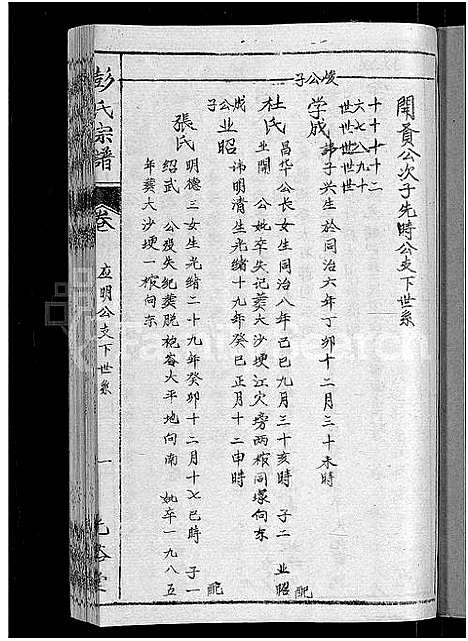 開貢公次子先時公支下世系
十六世
十七世
十八世
十九世
二十世
峻公子
学成 諱子兴生於同治六年丁卯十二月三十未時 配
杜氏 昌华公長女生同治八年己巳九月三十亥時 子二 业昭
业開 公妣卒失记葬大沙埂江灾旁两棺同塚向东
成公子
业昭 讳明清生光緒十九年癸巳正月十二申時 配
張氏 明德三女生光緒二十九年癸卯十二月十七巳時 子一
绍武 公殁失纪葬脱袍岺大平地向南 妣卒一九八五
年葬大沙埂一棺向东
彭氏宗譜
卷
应明公支下世系
一
FamilySearch